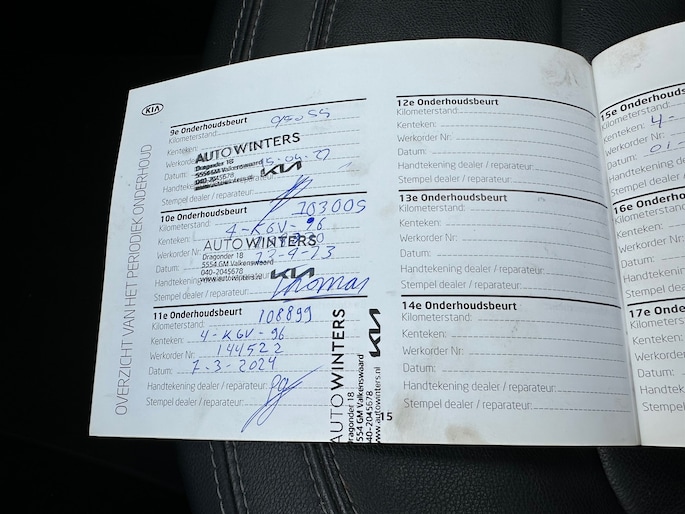 KIA
OVERZICHT VAN HET PERIODIEK ONDERHOUD
9e Onderhoudsbeurt
Kilometerstand:
Kenteken:
Werkorder Nr:
Datum:
Handtekening
Stempel dealer / reparateur:
AUTOWINTERS
Dragonder 18
5554 GM Valkenswaard
040-2045678
KIA
10e Onderhoudsbeurt
Kilometerstand: 103005
Kenteken: 4-KGV-96
Werkorder Nr:
Datum:
Handtekening dealer / reparateur:
Stempel dealer / reparateur:
AUTOWINTERS
Dragonder 18
5554 GM Valkenswaard
040-2045678
www.autowinters.nl
KIA
Thomas
11e Onderhoudsbeurt
Kilometerstand: 108899
Kenteken: 4-KGV-96
Werkorder Nr: 144522
Datum: 7-3-2024
Handtekening dealer / reparateur:
Stempel dealer / reparateur:
AUTOWINTERS
Dragonder 18
5554 GM Valkenswaard
040-2045678
www.autowinters.nl
KIA
15
12e Onderhoudsbeurt
Kilometerstand:
Kenteken:
Werkorder Nr:
Datum:
Handtekening dealer / reparateur:
Stempel dealer / reparateur:
13e Onderhoudsbeurt
Kilometerstand:
Kenteken:
Werkorder Nr:
Datum:
Handtekening dealer / reparateur:
Stempel dealer / reparateur:
14e Onderhoudsbeurt
Kilometerstand:
Kenteken:
Werkorder Nr:
Datum:
Handtekening dealer / reparateur:
Stempel dealer / reparateur:
15e Onderhouds
Kilometerstand:
Kenteken: 4-
Werkorder Nr:
Datum:
Handtekening
Stempel dea
16e Onderho
Kilometerst
Kenteken:
Werkorder
Datum:
Handteken
Stempel
17e Onder
Kilometer
Kenteken
Werkord
Datum:
Handte
Stemp